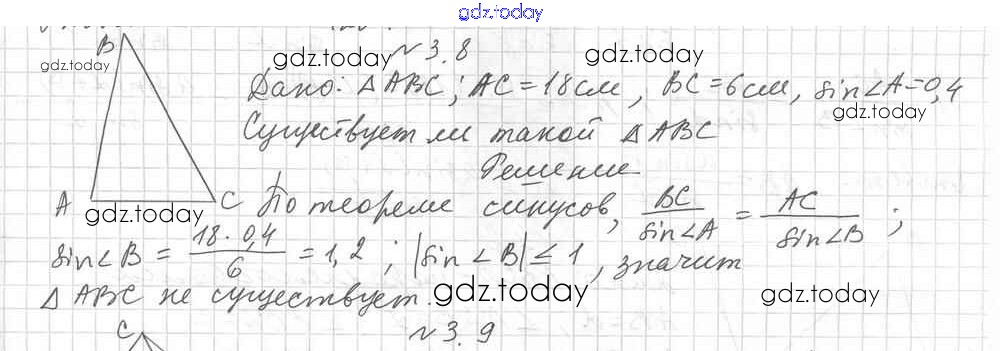 gdz.today
B
gdz.today
gdz.today № 3.8 gdz.today
Дано: △ABC; AC = 18см, BC = 6см, sin∠A = 0,4
gdz.today
Существует ли такой △ABC
Решение
A C По теореме синусов, BC/sin∠A = AC/sin∠B ;
gdz.today
sin∠B = 18·0,4/6 = 1,2 ; |sin∠B| ≤ 1, значит
△ABC не существует.
gdz.today gdz.today
№ 3.9
C